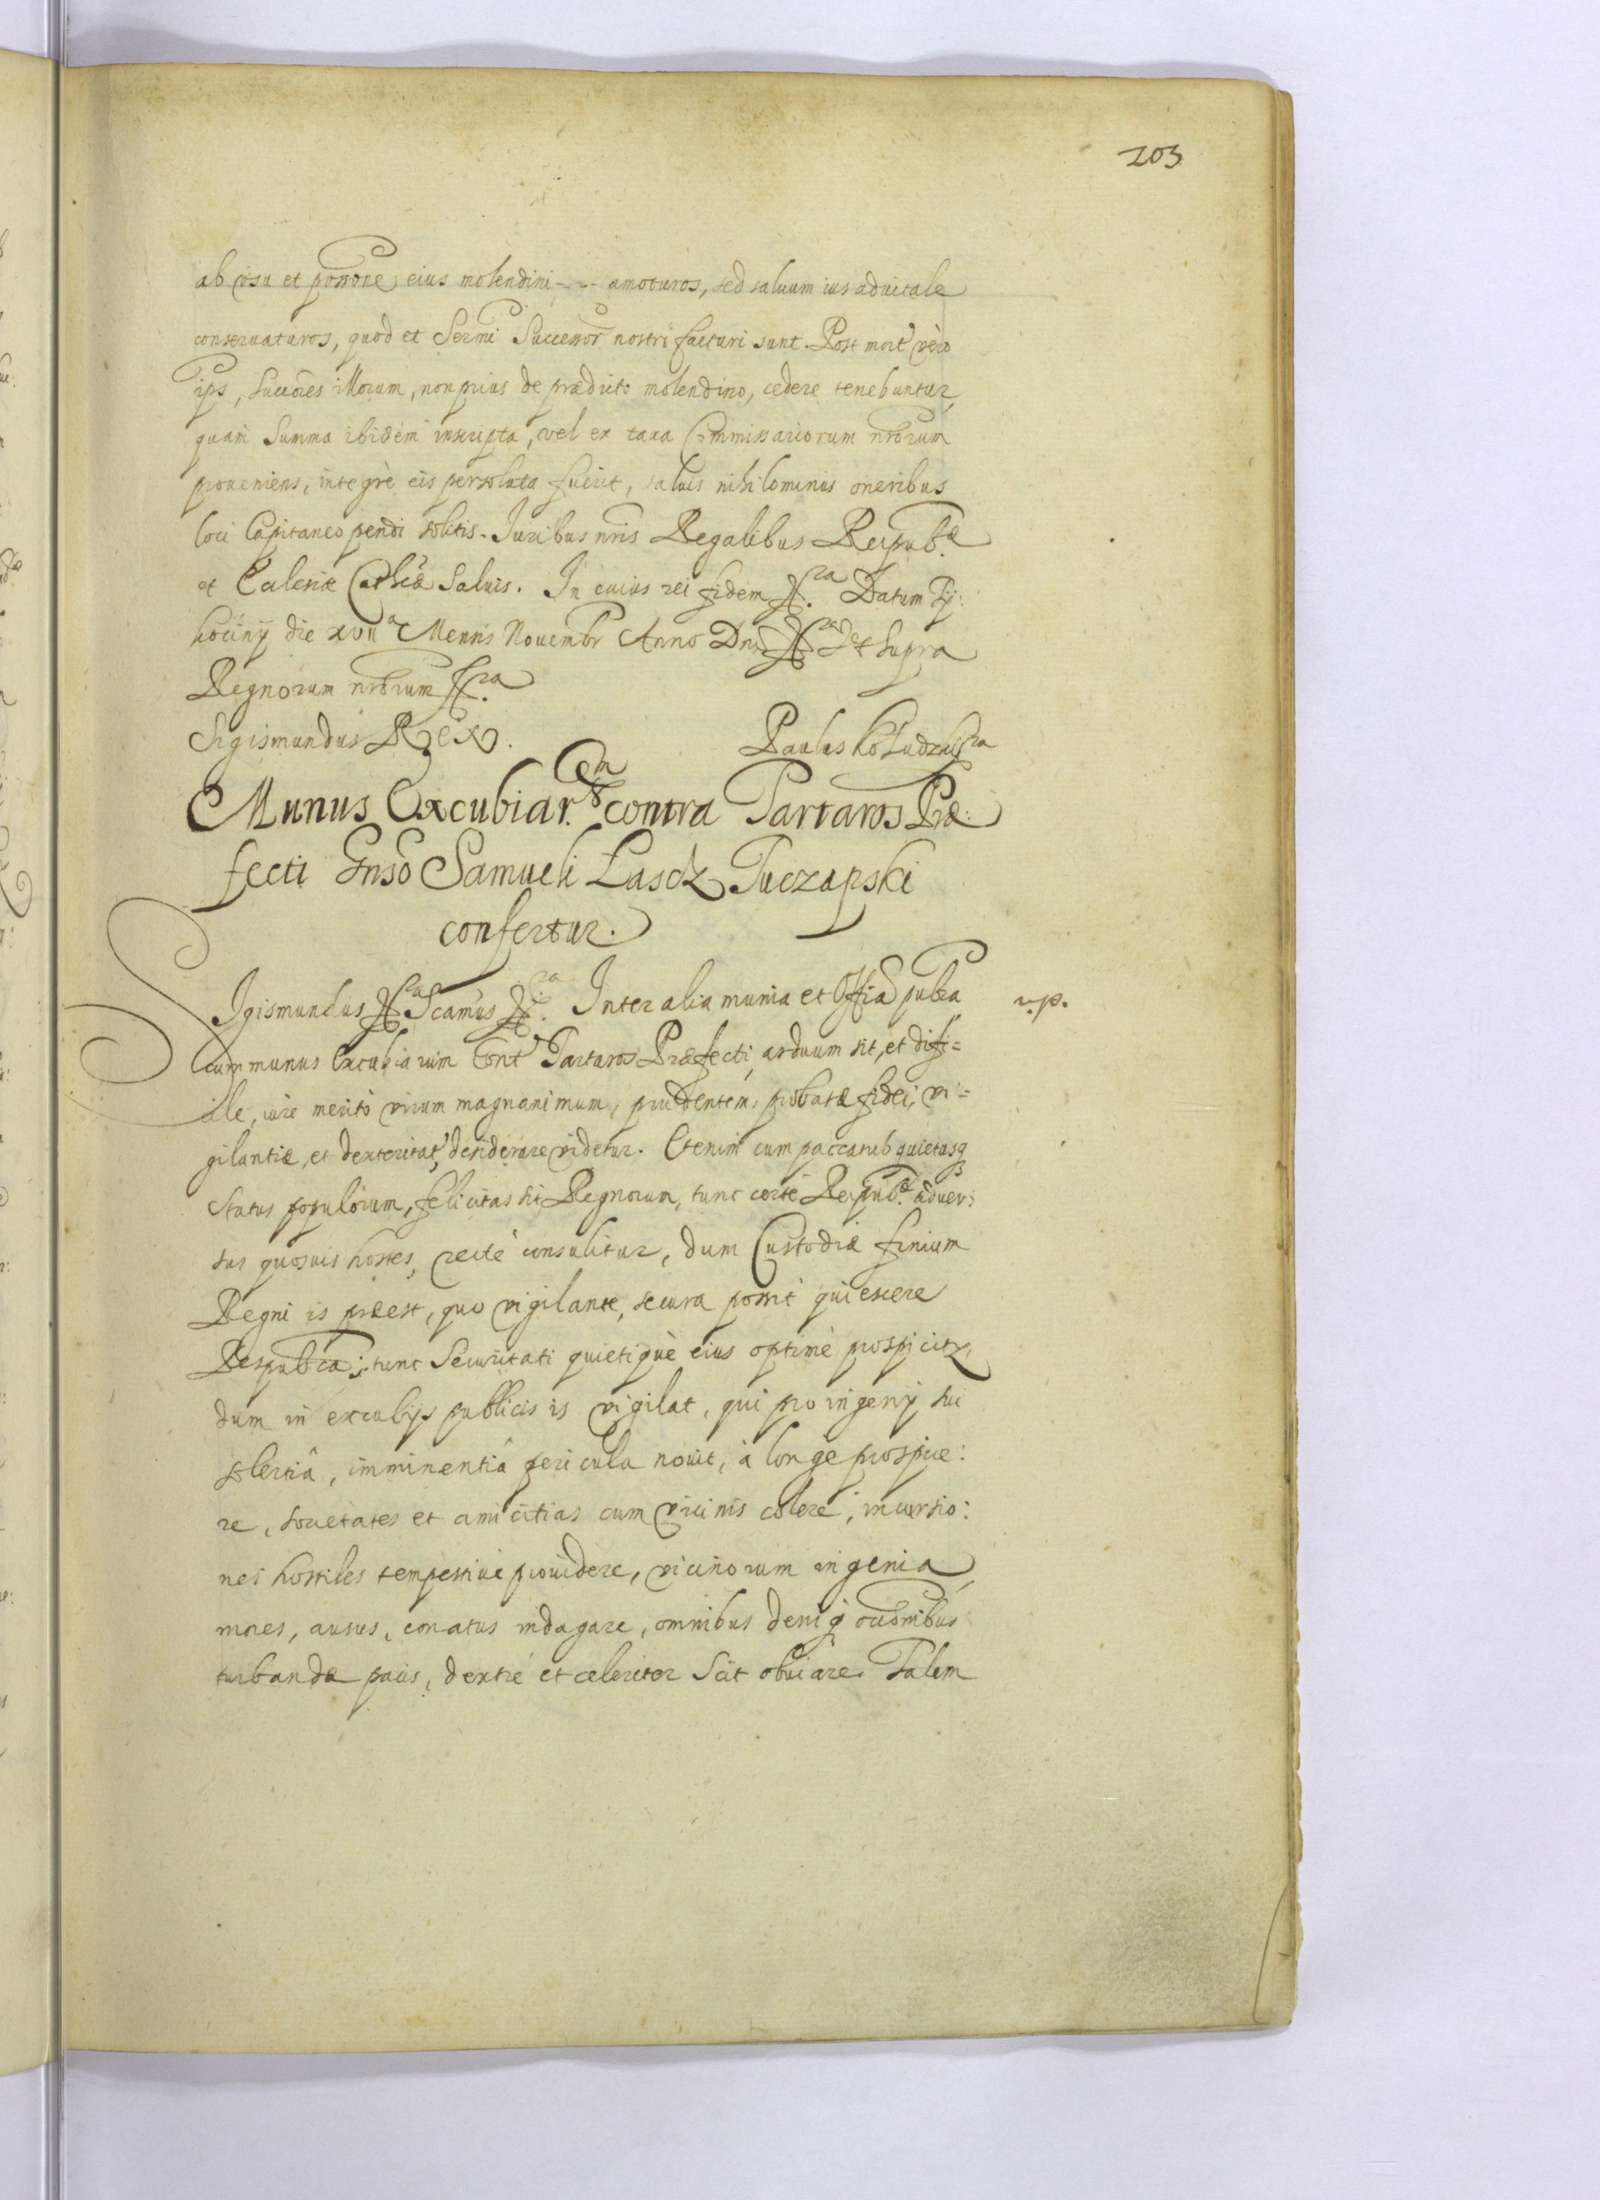 203
ab usu et possone eius molendini --- amoturos, sed saluum ius aduitale
conseruaturos, quod et Sermi Successor nostri facturi sunt. Post mort vero
ips, succōres illorum, non prius de prædicto molendino, cedere tenebuntur,
quam Summa ibidem inscripta, vel ex taxa Commissariorum nrōrum
proueniens, integrè eis persoluta fuerit, saluis nihilominus oneribus
loci Capitaneo pendi solitis. Iuribus nris Regalibus Reipub:æ
et Eccleśiæ Cathcæ Saluis. In cuius rei fidem &c.ra Datum Ty:
kociny die XVII a Mensis Nouembr Anno Dni &c.ra Vt supra
Regnorum nrōrum &c.ra
Sigismundus Rex. Paulus Kołudzki &c.ra
Munus Excubiar. contra Tartaros Præ:
fecti Gnso Samueli Lascz Tuczapski
confertur.
SIgismundus &c.ra Scamus &c.ra Inter alia munia et Offia publca
v.p.
cum munus Excubiarum Cont Tartaros Præfecti, arduum sit, et difi=
cile, iure meritò virum magnanimum, prudentem, probatæ fidei, vi=
gilantiæ, et dexteritat, desiderare videtur. Etenim cum paccatus quietusq
Status populorum, felicitas sit Regnorum, tunc certè Reipub:æ aduer:
sus quosuis hostes, rectè consulitur, dum Custodiæ finium
Regni is præest, quo vigilante, secura possit quiescere
Respublca; tunc Securitati quietiquè eius optimè prospicitr,
dum in excubijs publicis is vigilat, qui pro ingenij sui
solertiâ, imminentia pericula nouit, à longe prospice:
re, societates et amicitias cum vicinis colere, incursio:
nes hostiles tempestiuè prouidere, vicinorum ingenia,
mores, ausus, conatus indagare, omnibus deniq occōnibus
turbandæ pacis, dextrè et celeriter Scit obuiare. Talem